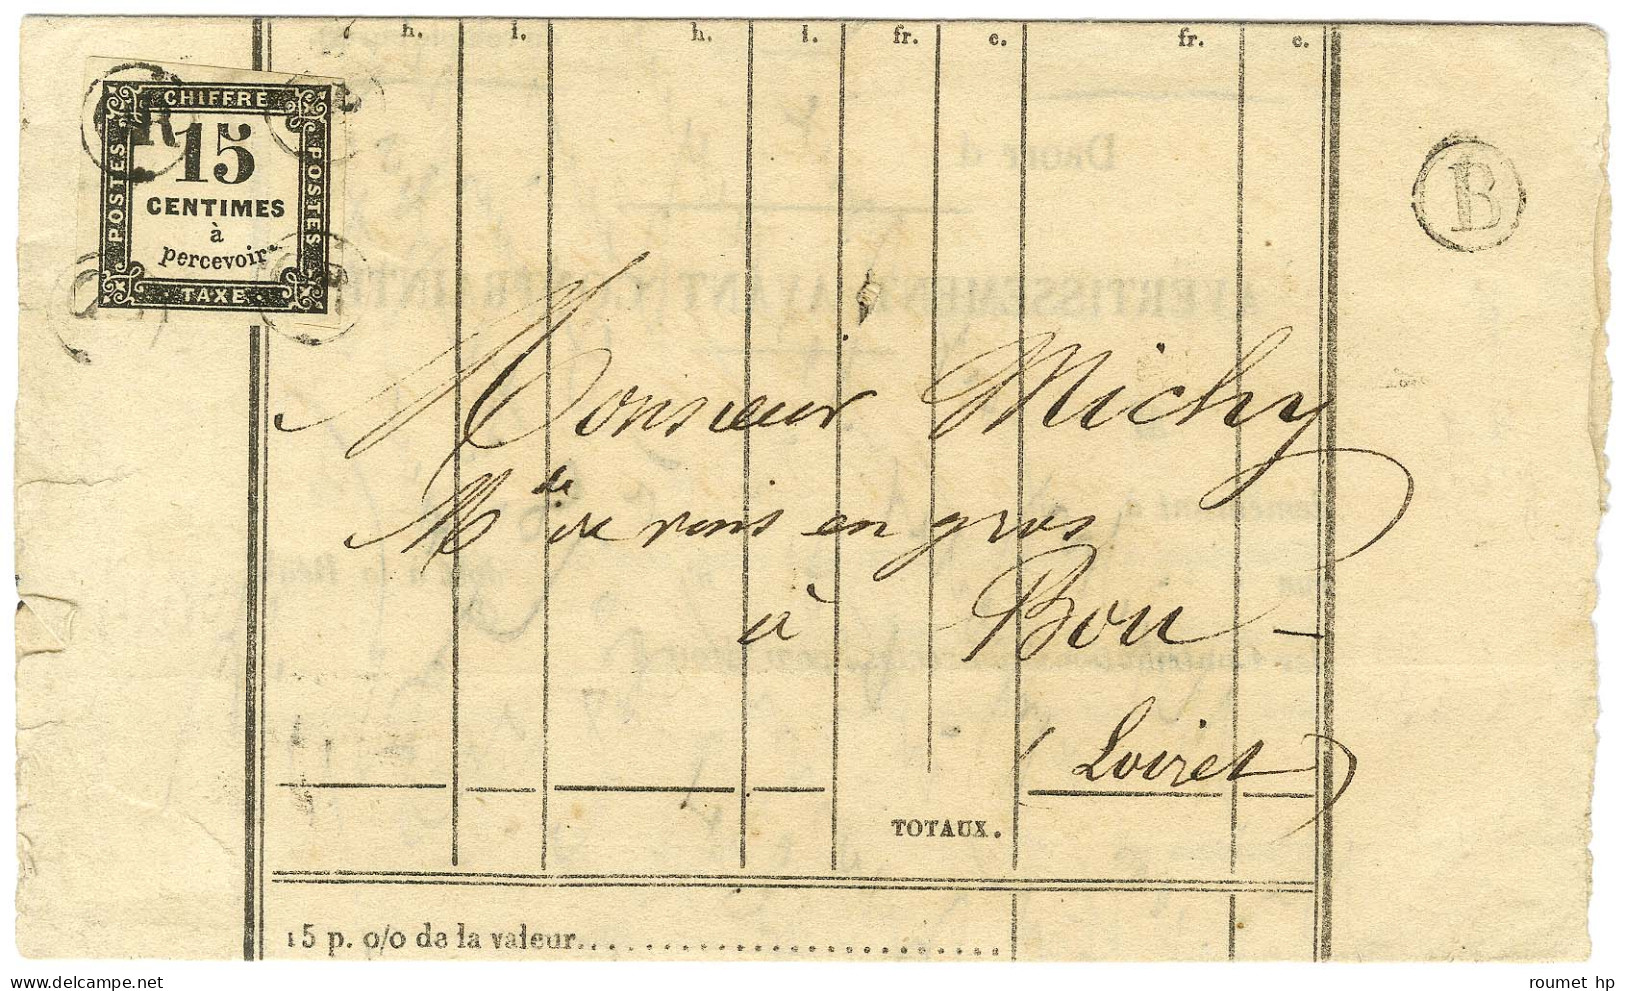 h. l. h. l. fr. c. fr. c.
CHIFFRE
POSTES
15
CENTIMES
à
percevoir
POSTES
TAXE
OR
B
Monsieur Michy
Md de vins en gros
à Bou
(Loiret)
TOTAUX.
15 p. o/o de la valeur
roumet hp